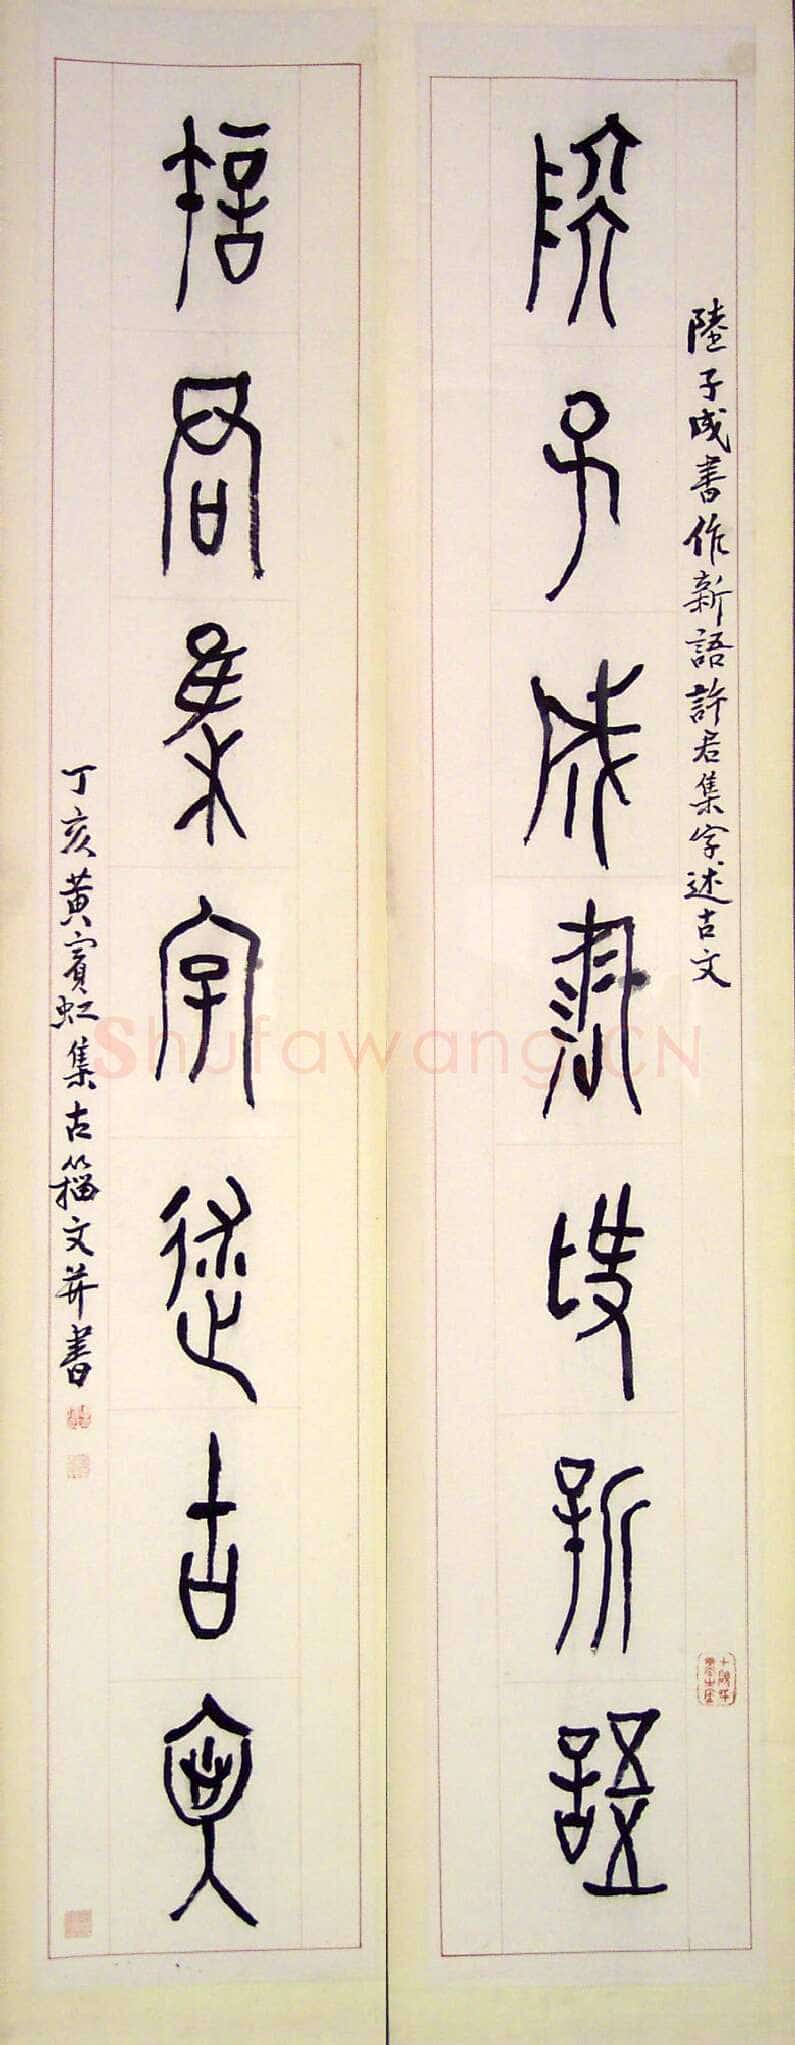 陸子成書作新語
陸子成書作新語許君集字述古文
許君集字述古文
丁亥黃賓虹集古籀文并書
Shufawang.CN